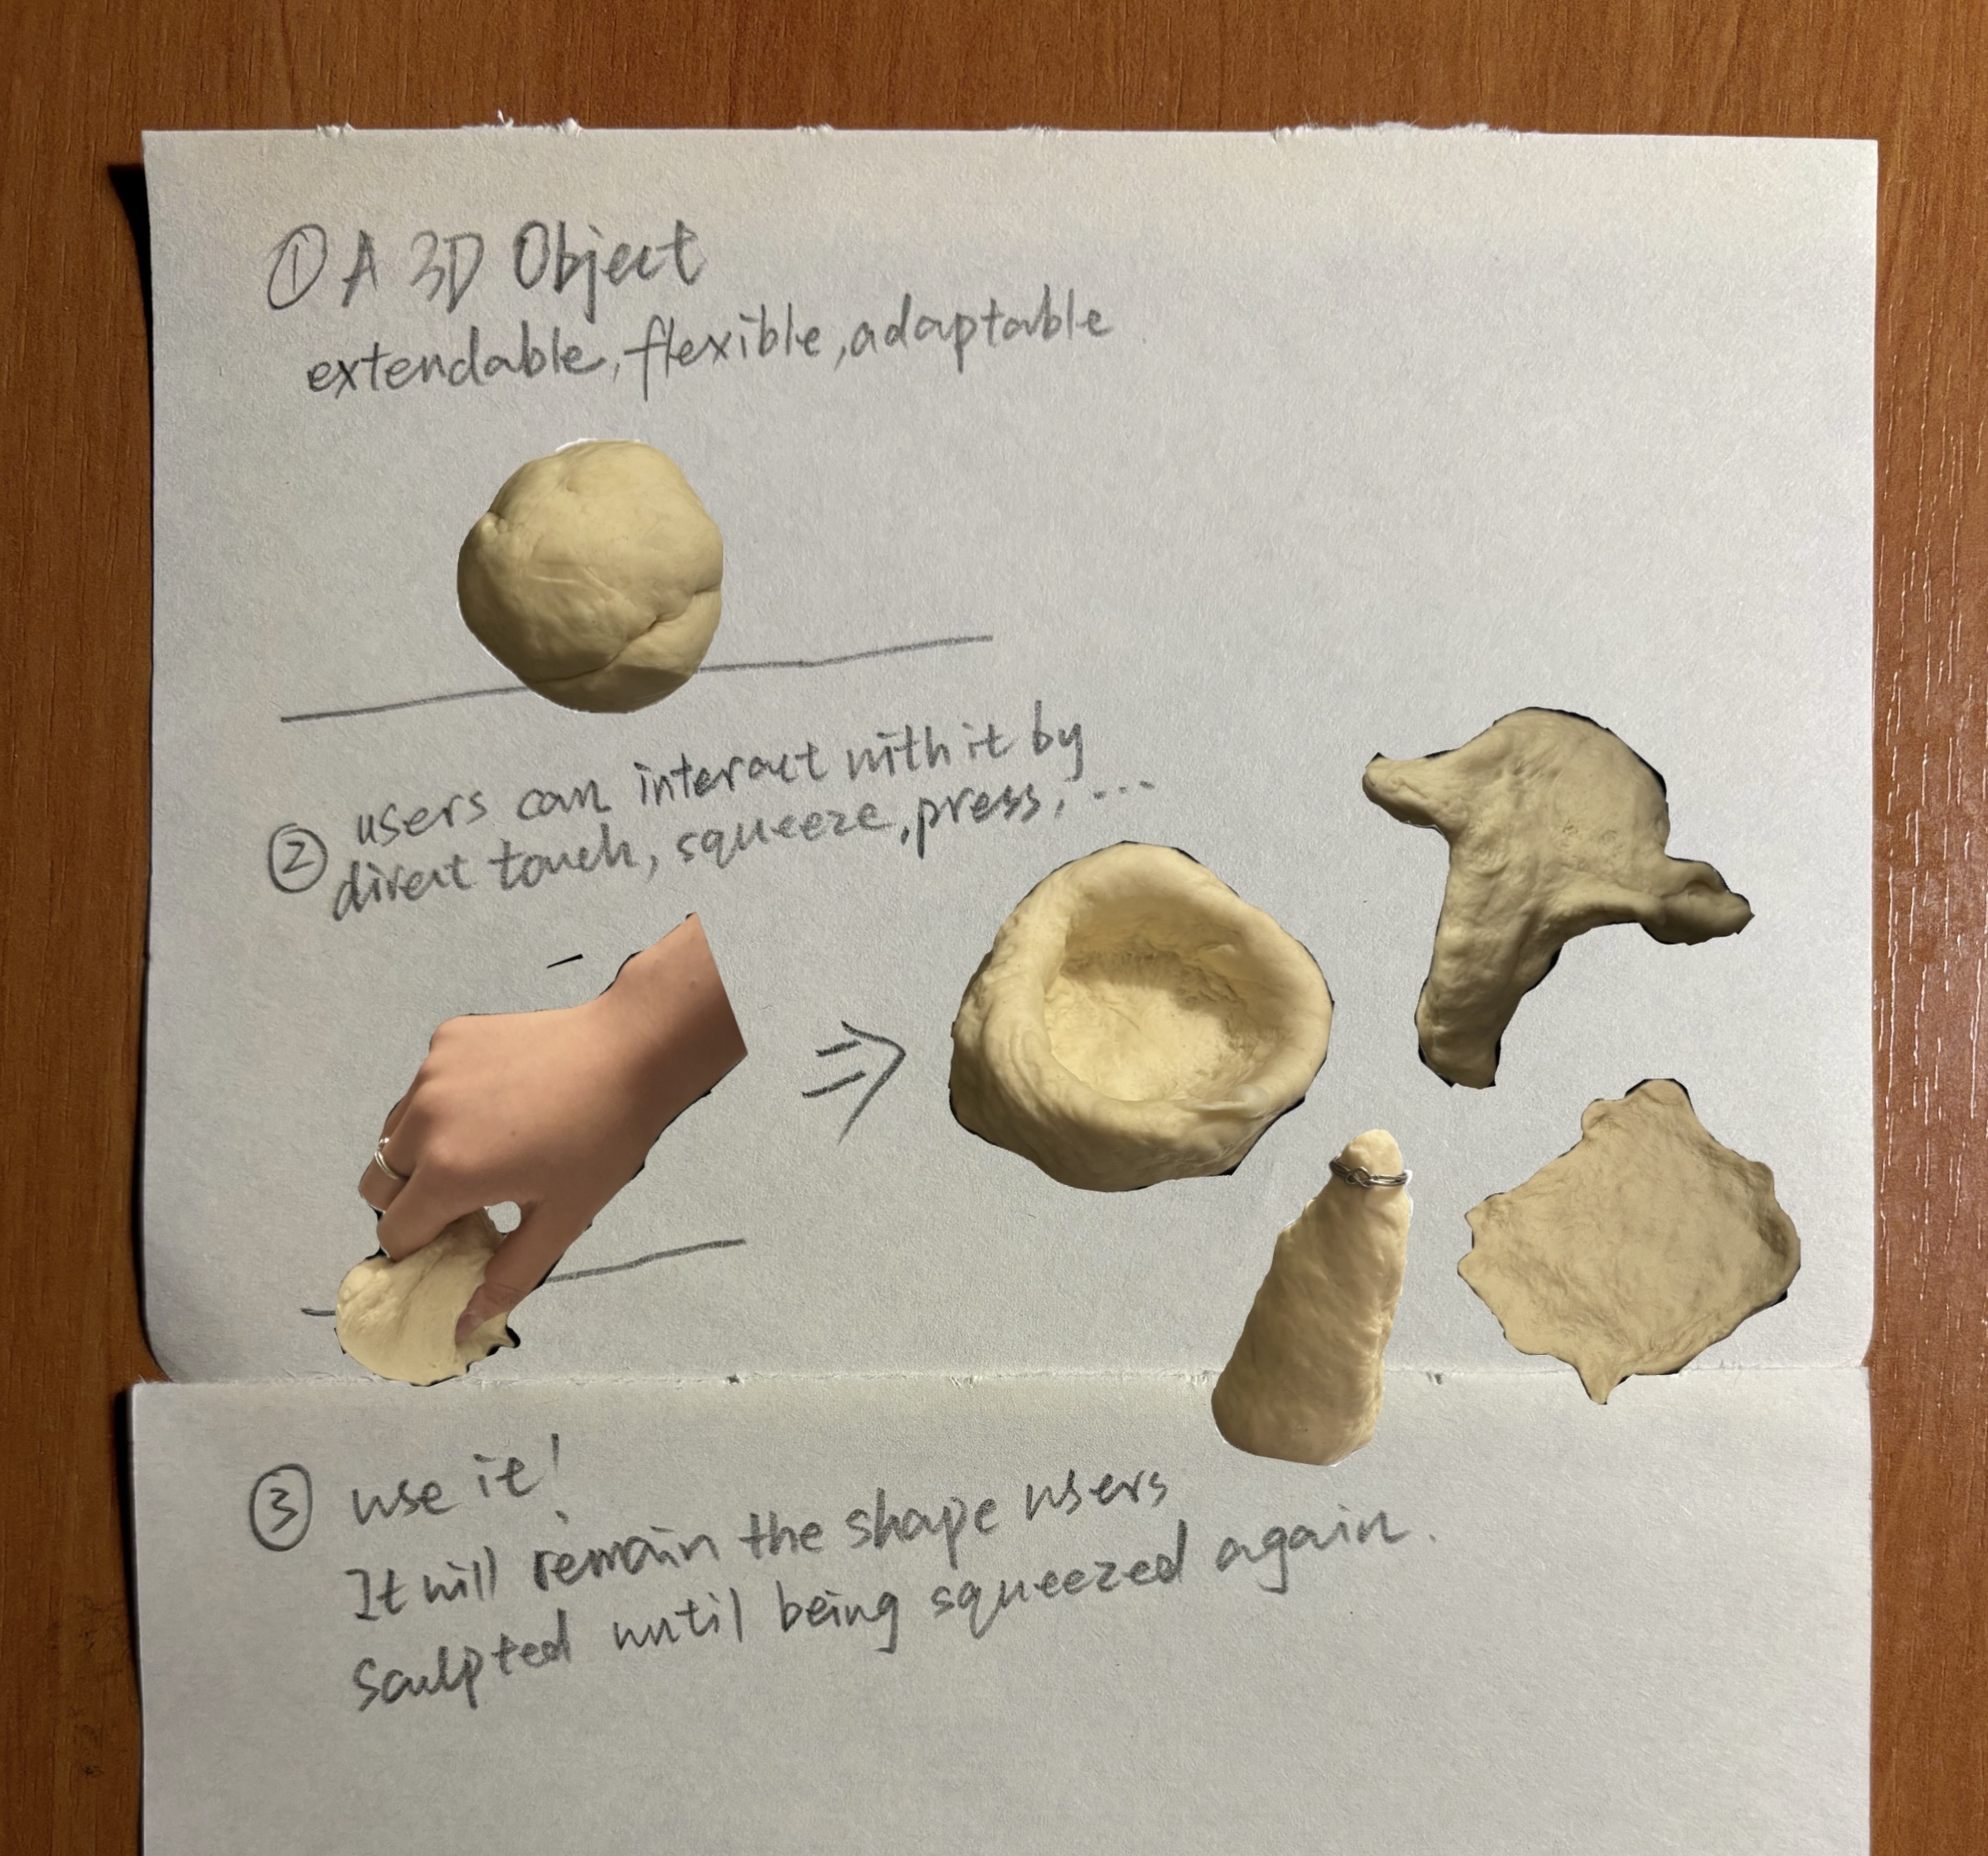 ① A 3D Object
extendable, flexible, adaptable
② users can interact with it by
direct touch, squeeze, press, ...
③ use it!
It will remain the shape users
sculpted until being squeezed again.